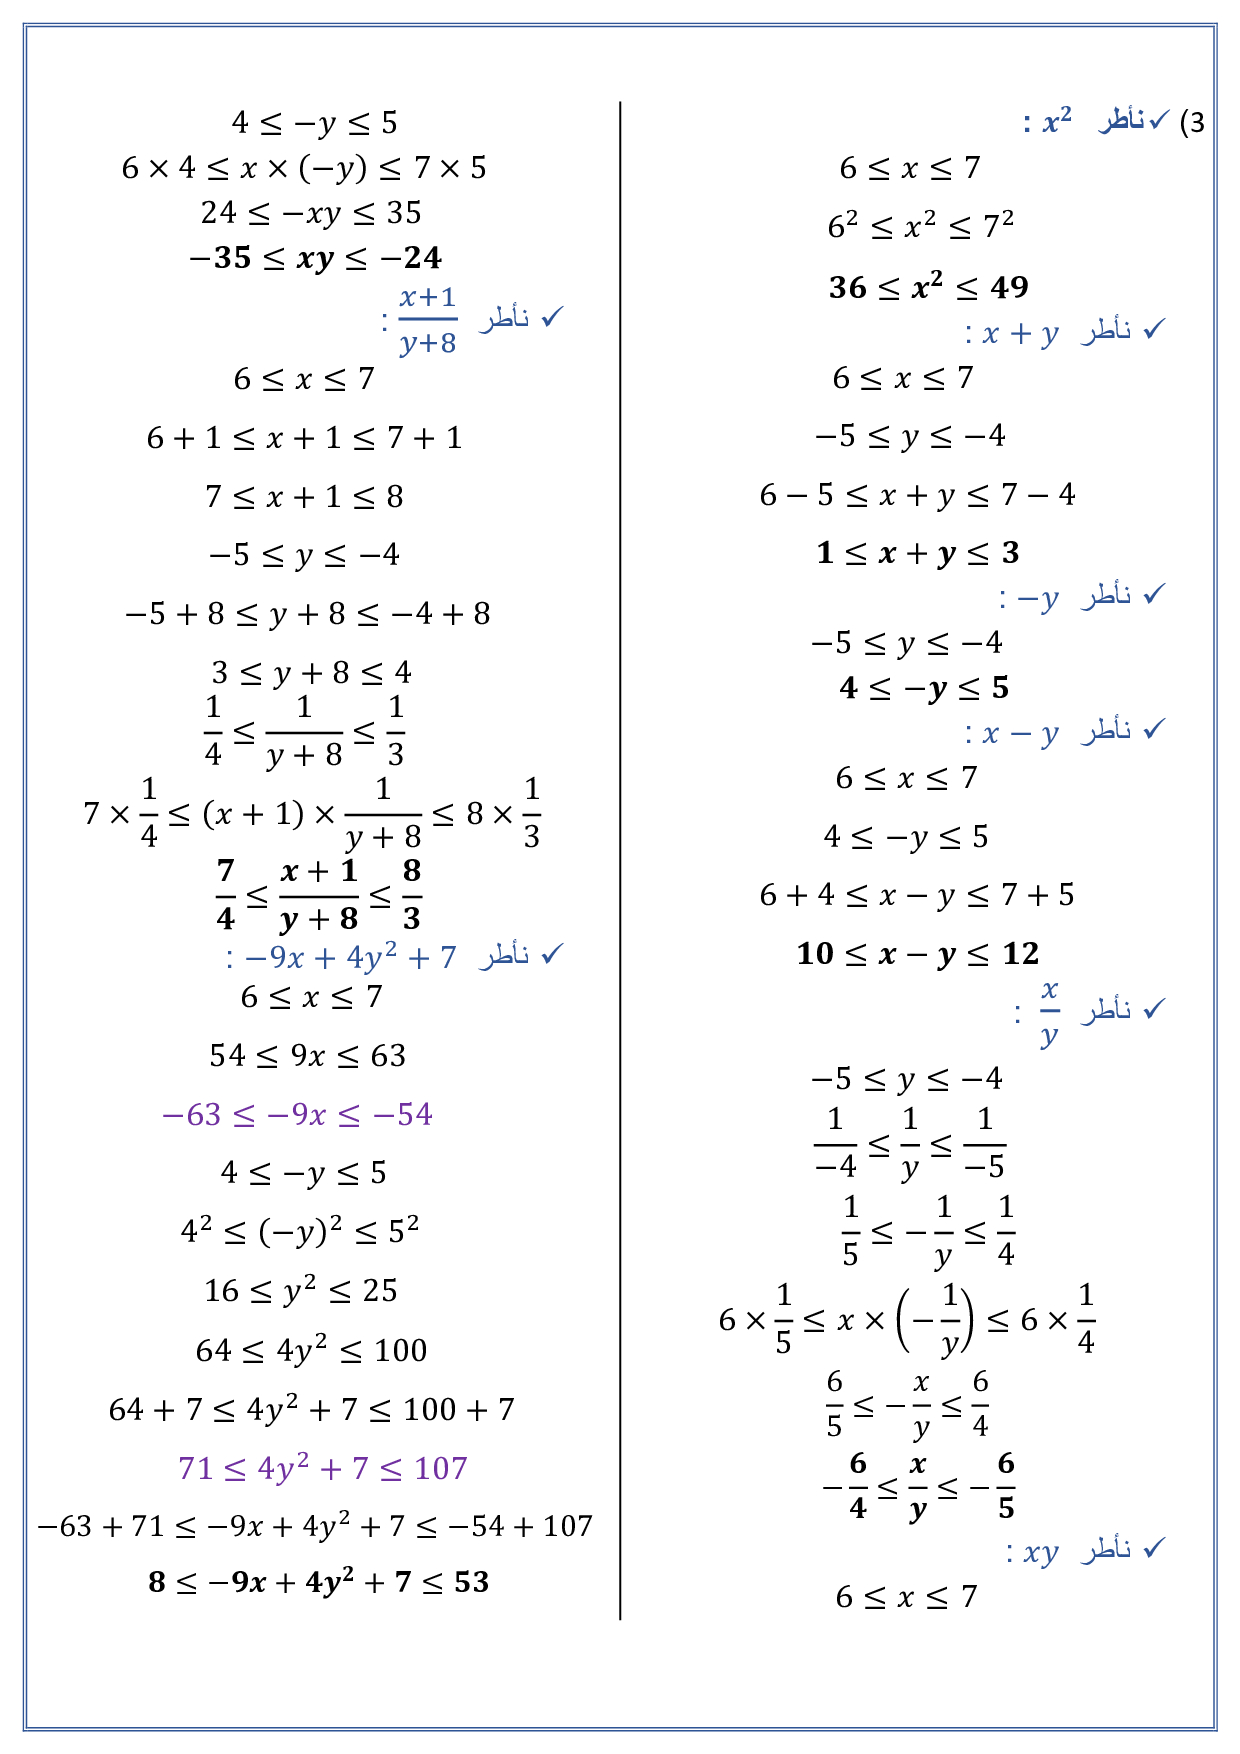 3) ✓ نأطر x² :
6 ≤ x ≤ 7
6² ≤ x² ≤ 7²
36 ≤ x² ≤ 49
✓ نأطر x + y :
6 ≤ x ≤ 7
−5 ≤ y ≤ −4
6 − 5 ≤ x + y ≤ 7 − 4
1 ≤ x + y ≤ 3
✓ نأطر −y :
−5 ≤ y ≤ −4
4 ≤ −y ≤ 5
✓ نأطر x − y :
6 ≤ x ≤ 7
4 ≤ −y ≤ 5
6 + 4 ≤ x − y ≤ 7 + 5
10 ≤ x − y ≤ 12
✓ نأطر x/y :
−5 ≤ y ≤ −4
1/−4 ≤ 1/y ≤ 1/−5
1/5 ≤ −1/y ≤ 1/4
6 × 1/5 ≤ x × (−1/y) ≤ 6 × 1/4
6/5 ≤ −x/y ≤ 6/4
−6/4 ≤ x/y ≤ −6/5
✓ نأطر xy :
6 ≤ x ≤ 7
4 ≤ −y ≤ 5
6 × 4 ≤ x × (−y) ≤ 7 × 5
24 ≤ −xy ≤ 35
−35 ≤ xy ≤ −24
✓ نأطر (x+1)/(y+8) :
6 ≤ x ≤ 7
6 + 1 ≤ x + 1 ≤ 7 + 1
7 ≤ x + 1 ≤ 8
−5 ≤ y ≤ −4
−5 + 8 ≤ y + 8 ≤ −4 + 8
3 ≤ y + 8 ≤ 4
1/4 ≤ 1/(y + 8) ≤ 1/3
7 × 1/4 ≤ (x + 1) × 1/(y + 8) ≤ 8 × 1/3
7/4 ≤ (x + 1)/(y + 8) ≤ 8/3
✓ نأطر −9x + 4y² + 7 :
6 ≤ x ≤ 7
54 ≤ 9x ≤ 63
−63 ≤ −9x ≤ −54
4 ≤ −y ≤ 5
4² ≤ (−y)² ≤ 5²
16 ≤ y² ≤ 25
64 ≤ 4y² ≤ 100
64 + 7 ≤ 4y² + 7 ≤ 100 + 7
71 ≤ 4y² + 7 ≤ 107
−63 + 71 ≤ −9x + 4y² + 7 ≤ −54 + 107
8 ≤ −9x + 4y² + 7 ≤ 53